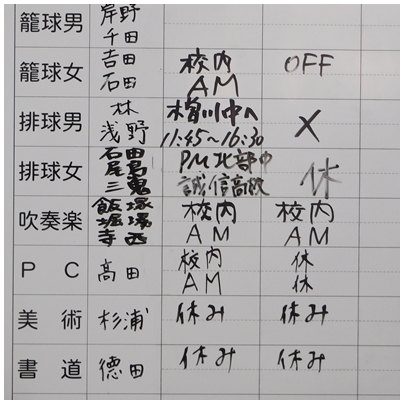 籠球男 岸野
千田
籠球女 吉田 校内 OFF
石田 AM
排球男 林 X
浅野 11:45~16:30
排球女 石田 PM北部中 休
尾島 誠信高校
三鬼
吹奏楽 飯塚 校内 校内
堀場 AM AM
寺西
PC 高田 校内 休
AM 休
美術 杉浦 休み 休み
書道 德田 休み 休み